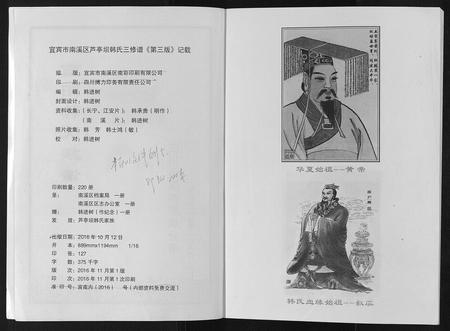 宜宾市南溪区芦亭坝韩氏三修谱《第三版》记载
出 版：宜宾市南溪区南彩印刷有限公司
印 刷：四川博力印务有限责任公司
编 辑：韩进树
封面设计：韩进树
资料收集：（长宁、江安片）：韩承贵（明作）
（南 溪 片）：韩进树
照片收集：韩 芳 韩士鸿（敏）
校 对：韩进树
印刷数量：220 册
呈： 南溪区档案局 一册
南溪区区志办公室 一册
赠： 韩进树（作纪念）一册
发 放：芦亭坝韩氏家族
出版日期：2016 年 10 月 12 日
开 本：889mmx1194mm 1/16
印 张：127
字 数：375 千字
版 次：2016 年 11 月第 1 版
印 次：2016 年 11 月第 1 次印刷
准 印 号：宜南内（2016） 号（内部资料免费交流）
华夏始祖--黄帝
韩氏血缘始祖--叔虞